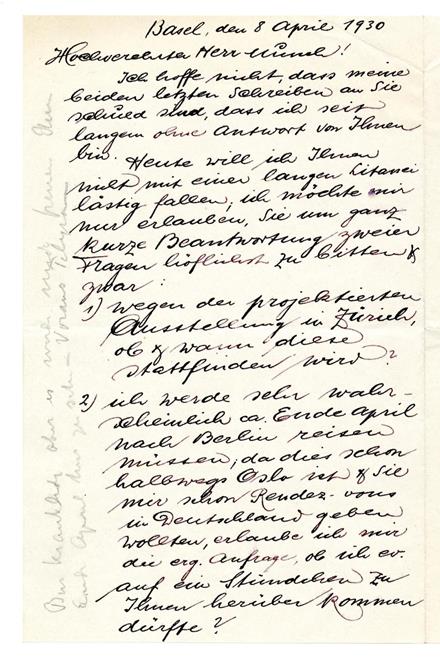 Basel, den 8 April 1930
Hochverehrter Herr Munch!
Ich hoffe nicht, dass meine
beiden letzten Schreiben an Sie
schuld sind, dass ich seit
langem ohne Antwort von Ihnen
bin. Heute will ich Ihnen
nicht mit einer langen Litanei
lästig fallen, ich möchte mir
nur erlauben, Sie um ganz
kurze Beantwortung zweier
Fragen höflichst zu bitten &
zwar:
1) wegen der projektierten
Ausstellung in Zürich,
ob & wann diese
stattfinden wird?
2) ich werde sehr wahr-
scheinlich ca. Ende April
nach Berlin reisen
müssen; da dies schon
halbwegs Oslo ist & Sie
mir schon Rendez-vous
in Deutschland geben
wollten, erlaube ich mir
die erg. Anfrage, ob ich ev.
auf ein Stündchen zu
Ihnen herüber kommen
dürfte?
Bin krank
Ende April